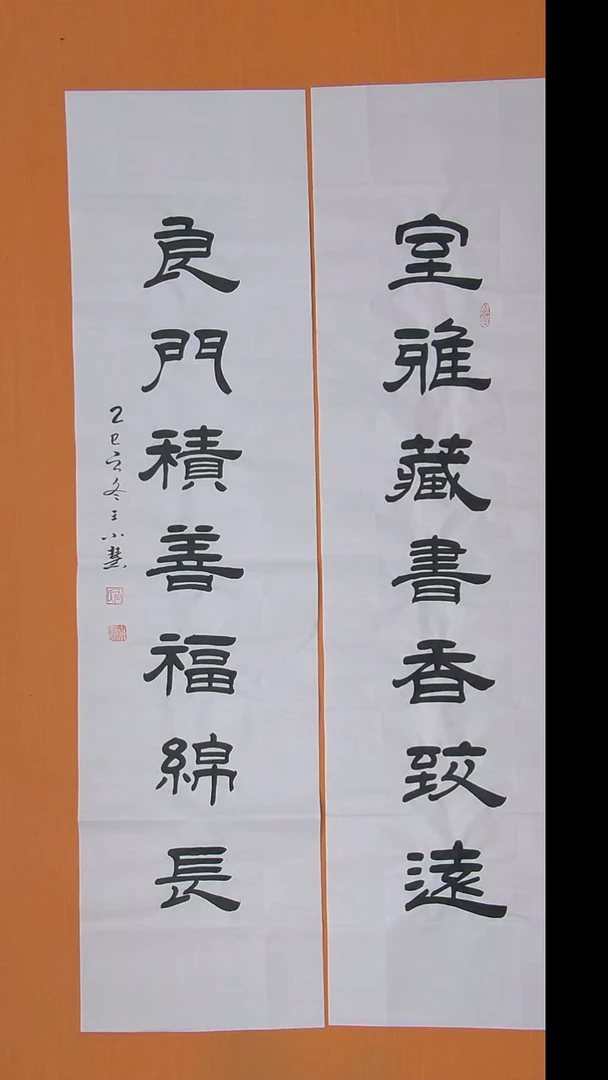 室雅藏書香致遠
良門積善福綿長
乙巳立冬王小慧